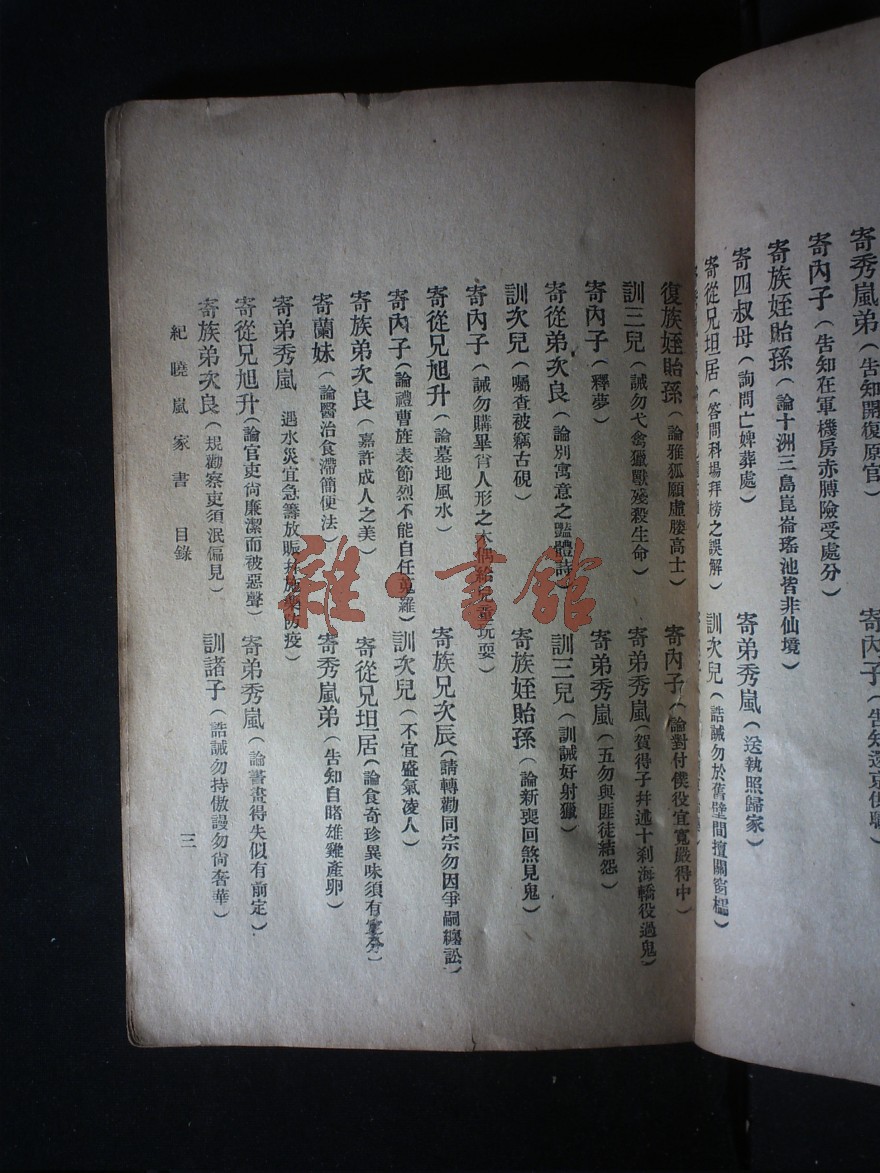 寄秀嵐弟（告知開復原官）
寄內子（告知在軍機房赤膊險受處分）
寄族姪貽孫（論十洲三島崑崙瑤池皆非仙境）
寄四叔母（詢問亡婢葬處）
寄弟秀嵐（送執照歸家）
寄從兄坦居（答問科場拜榜之誤解）
訓次兒（誥誡勿於舊壁間擅關窗櫺）
復族姪貽孫（論雅狐願虛媵高士）
寄內子（論對付僕役宜寬嚴得中）
訓三兒（誡勿弋禽獵獸殘殺生命）
寄弟秀嵐（賀得子并述十剎海轎役過鬼）
寄內子（釋夢）
寄弟秀嵐（五勿與匪徒結怨）
寄從弟次良（論別寓意之豔體詩）
訓三兒（訓誡好射獵）
訓次兒（囑查被竊古硯）
寄族姪貽孫（論新喪回煞見鬼）
寄內子（誡勿購畢肖人形之木偶給兒童玩耍）
寄從兄旭升（論墓地風水）
寄族兄次辰（請轉勸同宗勿因爭嗣纏訟）
寄內子（論禮曹旌表節烈不能自任蒐羅）
訓次兒（不宜盛氣凌人）
寄族弟次良（嘉許成人之美）
寄從兄坦居（論食奇珍異味須有定分）
寄蘭妹（論醫治食滯簡便法）
寄秀嵐弟（告知自睹雄雞產卵）
寄弟秀嵐　遇水災宜急籌放賑并施藥防疫）
寄從兄旭升（論官吏尚廉潔而被惡聲）
寄弟秀嵐（論書畫得失似有前定）
寄族弟次良（規勸察吏須泯偏見）
訓諸子（誥誡勿持傲謾勿尚奢華）
紀曉嵐家書　目錄
三
雜·書館